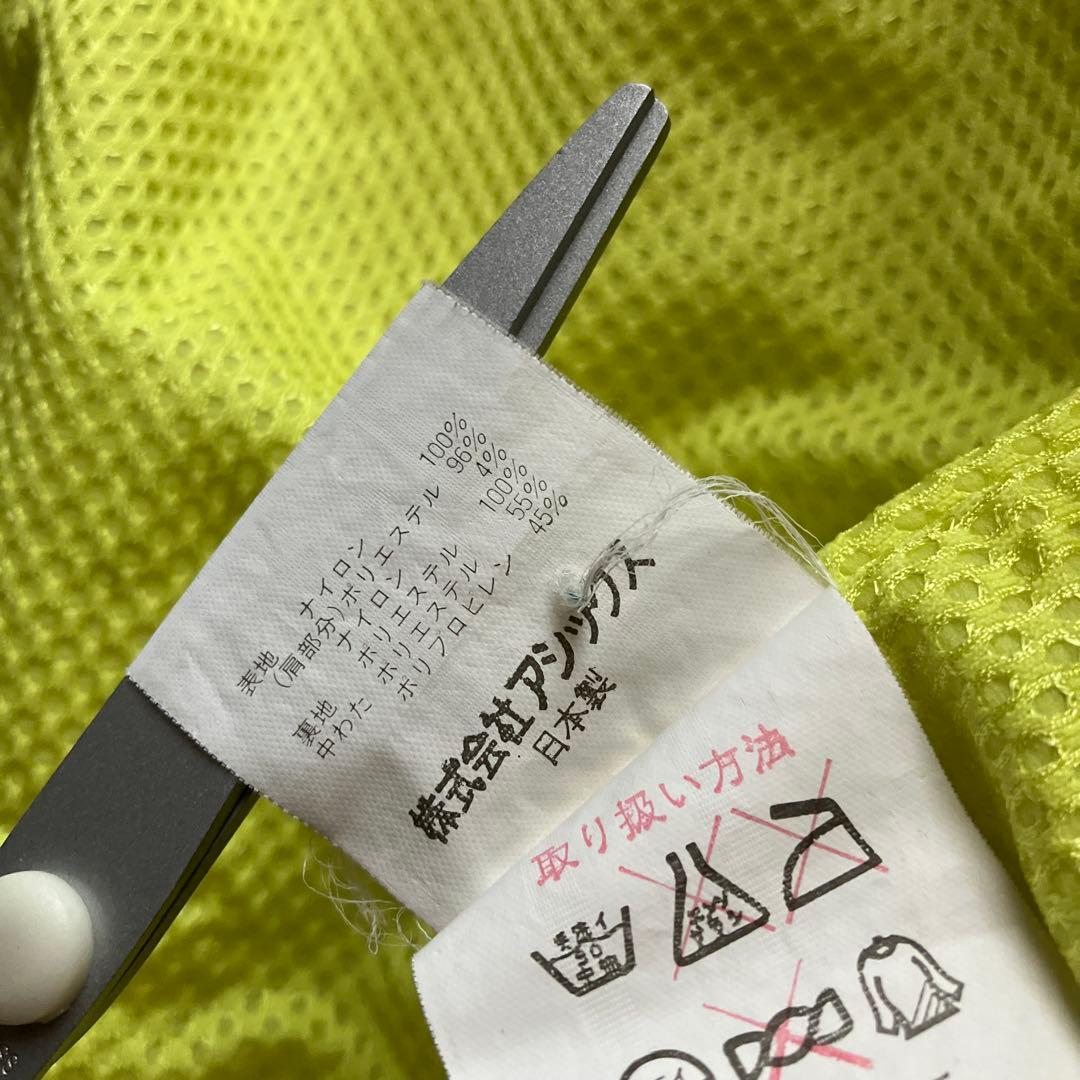 表地 ナイロン 100%
(肩部分)ポリエステル 96%
ナイロン 4%
裏地 ポリエステル 100%
中わた ポリエステル 55%
ポリプロピレン 45%
株式会社アシックス
日本製
取り扱い方法